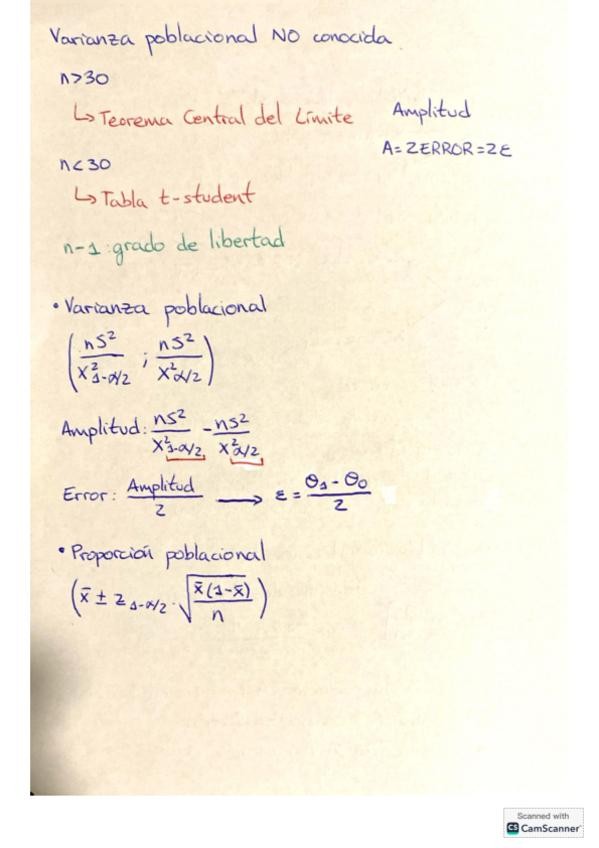 Varianza poblacional NO conocida
n>30
↳ Teorema Central del Límite
Amplitud
A=2ERROR=2ε
n<30
↳ Tabla t-student
n-1: grado de libertad
• Varianza poblacional
( nS² / X²₁₋α/₂ ; nS² / X²α/₂ )
Amplitud: nS² / X²₁₋α/₂ - nS² / X²α/₂
Error: Amplitud / 2 → ε = (θ₁ - θ₀) / 2
• Proporción poblacional
( x̄ ± z₁₋α/₂ · √( x̄(1-x̄) / n ) )
Scanned with
CS CamScanner